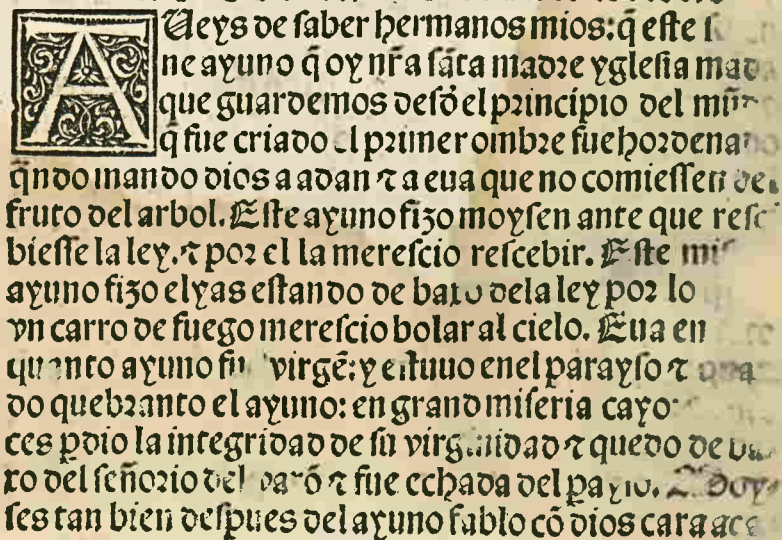 AUeys de saber hermanos mios: q̃ este
ne ayuno q̃ oy nr̃a sãta madre yglesia
que guardemos desdel principio del
q̃ fue criado el primer ombre fue
qñdo mando dios a adan ⁊ a eua que no comiessen del
fruto del arbol. Este ayuno fizo moysen ante que
biesse la ley. ⁊ por el la merescio rescebir. Este
ayuno fizo elyas estando de baxo dela ley por lo
vn carro de fuego merescio bolar al cielo. Eua en
quanto ayuno fue virgẽ: y estuuo enel parayso ⁊
do quebranto el ayuno: en grand miseria cayo
ces ꝑdio la integridad de su virginidad ⁊ quedo de
xo del señorio del varõ ⁊ fue echada del
ses tan bien despues del ayuno fablo cõ dios cara